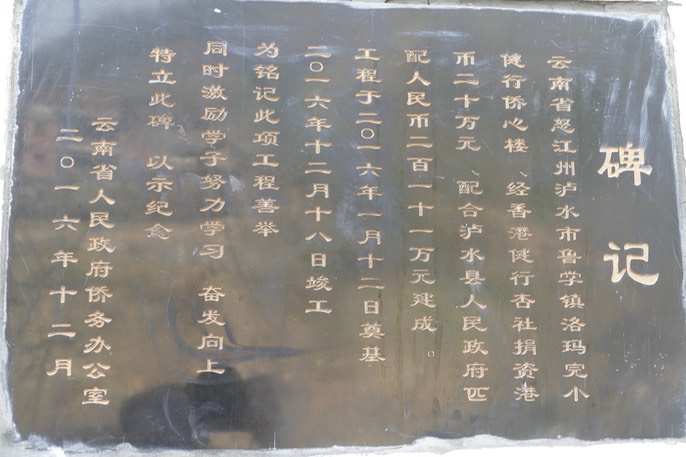 碑记
云南省怒江州泸水市鲁学镇洛玛完小
健行侨心楼、经香港健行杏社捐资港
币二十万元、配合泸水县人民政府匹
配人民币二百一十一万元建成。
工程于二〇一六年一月十二日奠基
二〇一六年十二月十八日竣工
为铭记此项工程善举
同时激励学子努力学习 奋发向上
特立此碑 以示纪念
云南省人民政府侨务办公室
二〇一六年十二月